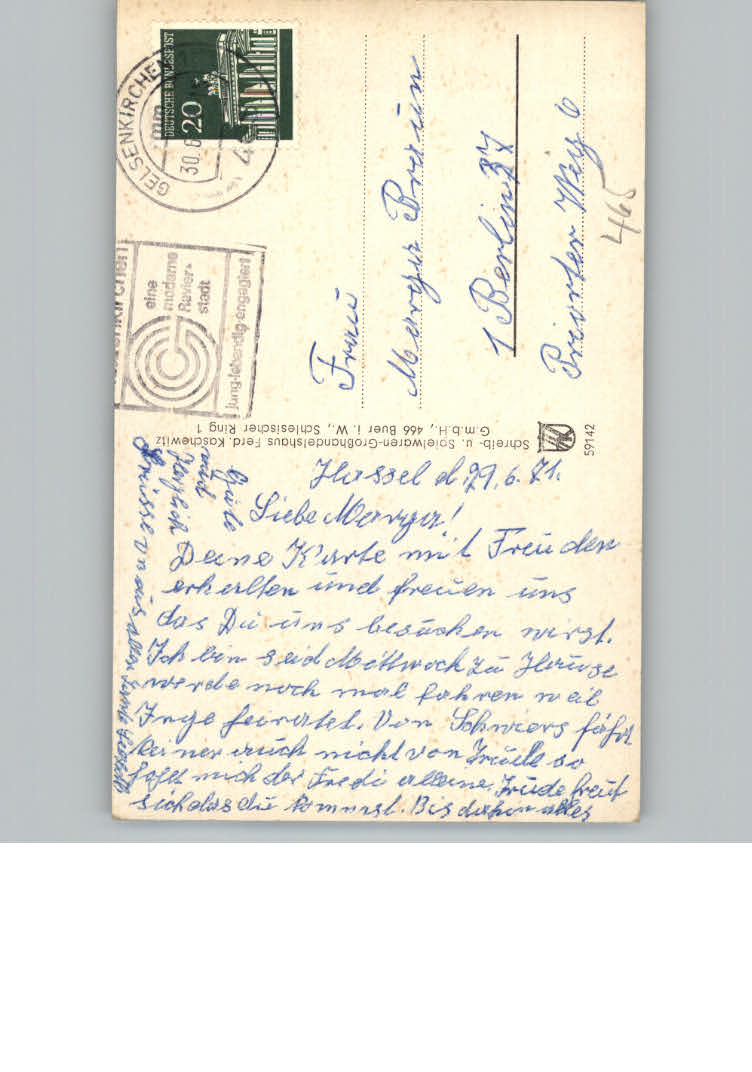 Hassel d. 29.6.71.
Liebe Marga!
Deine Karte mit Freuden
erhalten und freuen uns
das Du uns besuchen wirst.
Ich bin seid Mittwoch zu Hause
werde noch mal fahren weil
Inge heiratet. Von Schwiers fährt
keiner auch nicht von Trude so
holt mich der Fredi alleine, Trude freut
sich das du kommst. Bis dahin alles
Gute
und
Herzlich
Grüsse v. uns allen
Frau
Marga Braun
1 Berlin 37
Priorter Weg 6
465
GELSENKIRCHEN
30.6
DEUTSCHE BUNDESPOST
20
eine
moderne
Revier-
stadt
jung-lebendig-engagiert
Schreib- u. Spielwaren-Großhandelshaus Ferd. Kaschewitz
G.m.b.H., 466 Buer i. W., Schlesischer Ring 1
59142